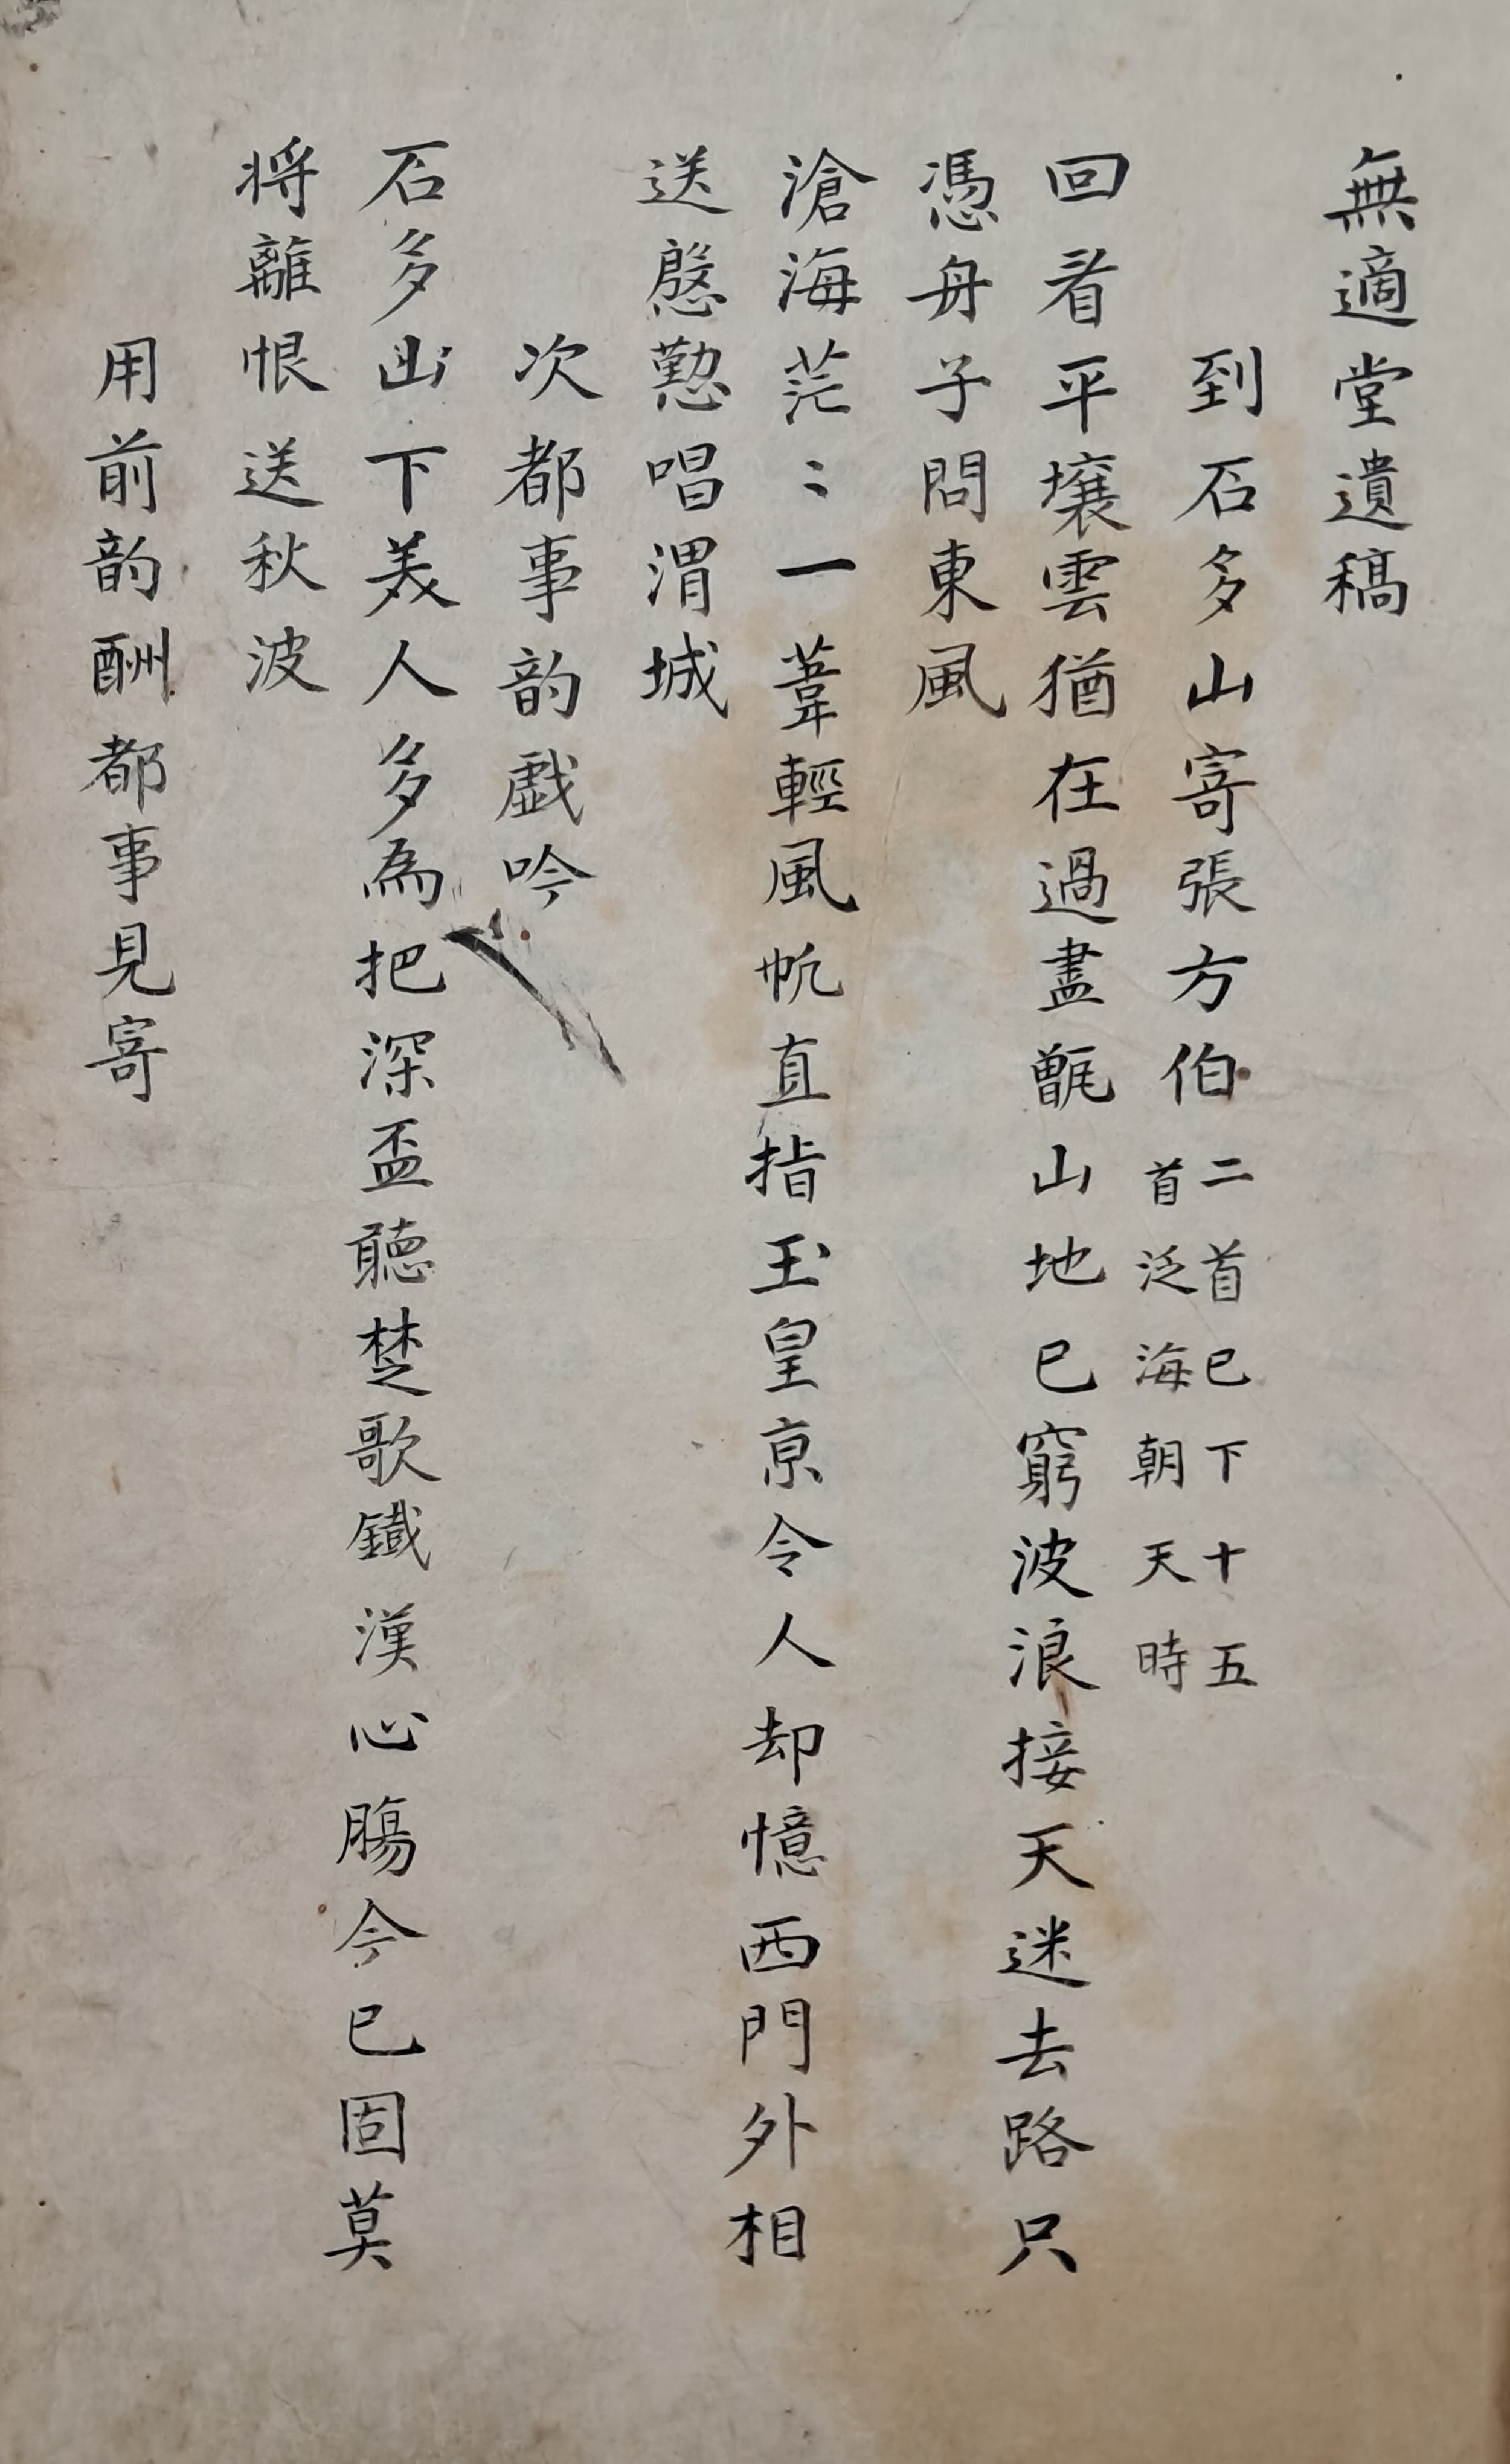 無適堂遺稿
到石多山寄張方伯二首已下十五首泛海朝天時
回看平壤雲猶在過盡甑山地已窮波浪接天迷去路只
憑舟子問東風
滄海茫〻一葦輕風帆直指玉皇京令人却憶西門外相
送慇懃唱渭城
次都事韵戱吟
石多山下美人多為把深盃聽楚歌鐵漢心腸今已固莫
将離恨送秋波
用前韵酬都事見寄